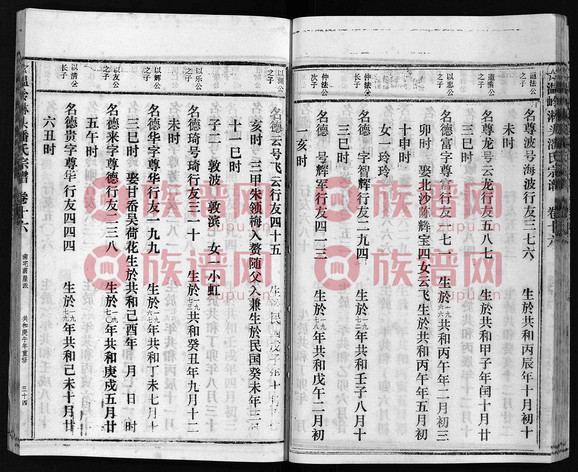 温岭
潘氏宗谱 卷十六
道法公
之子
名尊波号海波行友二三七六 生於一九七六年共和丙辰年十月初十
未时
道崇公
之子
名尊龙号云龙行友五八七 生於共和甲子年闰十月廿
以忠公
之子
名德富字尊辉行友二一七二 生於共和丙午年二月初三
卯时 娶北沙陈辉宝四女云飞生於共和丙午年五月初
十申时
女一玲玲
仲法公
长子
名德 字智辉行友一二九四 生於一九七二年共和壬子八月十
三巳时
仲法公
次子
名德 号辉军行友二三八一 生於一九七八年共和戊午二月初
一亥时
之子
名德云号飞云行友四十五
亥时 三甲朱领梅入赘随父入兼生於民国癸未年三
十一巳时
子二 敦波 敦滨 女一小虹
以乐公
之子
名德琦号琦行友三一十 生於共和癸丑年九月十二
未时
以辉公
之子
名德华字尊华行友一九九 生於共和丁未七月十
三巳时 娶甘岙吴荷花生於共和己酉年 月 日 时
以友公
之子
名德来字尊德行友二三八 生於共和庚戌五月廿
五午时
以清公
长子
名德贵字尊华行友四四四 生於一九七九年共和己未十月廿
六丑时
潘氏宗谱 卷十六
共和庚午年重修
三十四
族谱网
zupu.cn
族谱网
zupu.cn
族谱网
zupu.cn
族谱网
zupu.cn